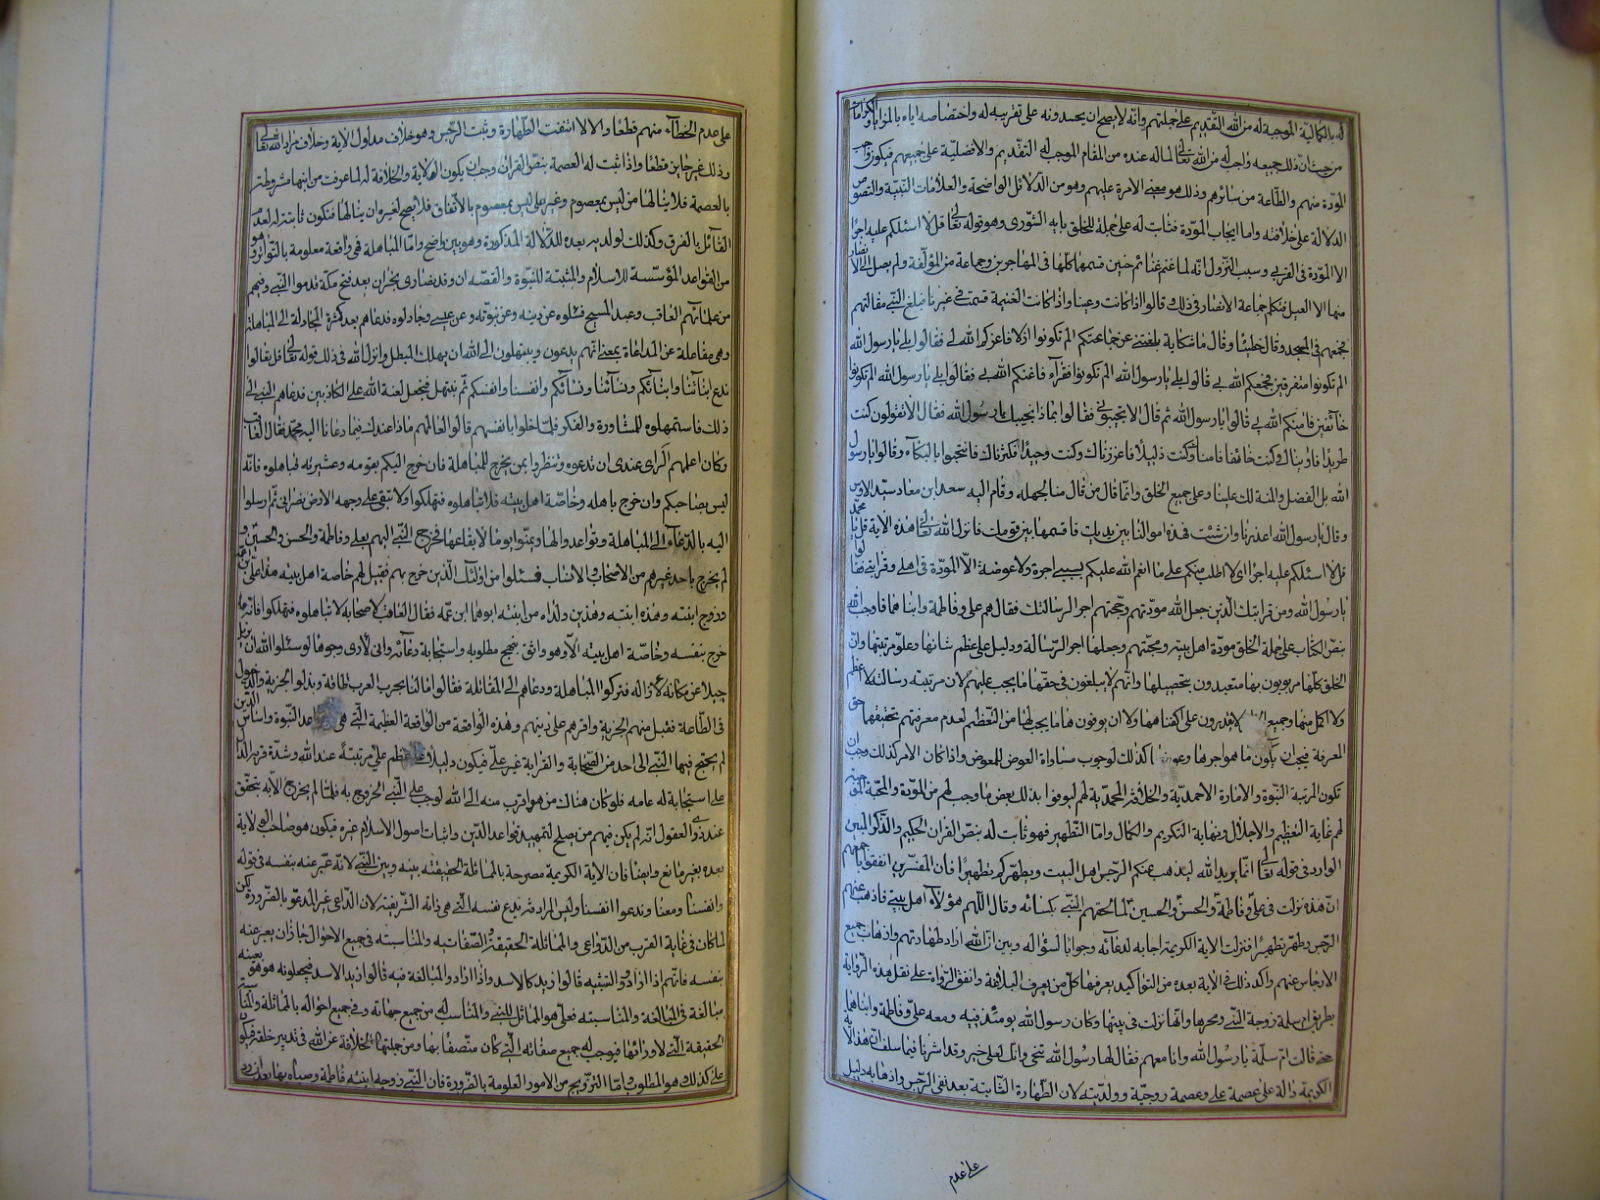 له بالكمالية الموجبة له من الله التقديم على جملتهم وانه لا يصح ان يحسدونه على تقريبه له واختصاصه اياه بالمزايا والكرامات
من حيث ان ذلك جميعه واجب له من الله تعالى لما له عنده من المقام الموجب له التقديم والافضلية على جميعهم فيكون واجب
المودّة منهم والطاعة من سائرهم وذلك هو معنى الامرة عليهم وهو من الدلائل الواضحة والعلامات البيّنة والنصوص
الدلالة على خلافته واما ايجاب المودّة فثابت له على جملة الخلق بآية الشورى وهو قوله تعالى قل لا اسئلكم عليه اجرا
الا المودّة فى القربى وسبب النزول انّه لما غنم غنائم حنين قسمها كلها فى المهاجرين وجماعة من المؤلّفة ولم يصل الى الانصار
منها الا القليل فتكلم جماعة الانصار فى ذلك وقالوا اذا كانت دعينا واذا كانت الغنيمة قسمت فى غيرنا فبلغ النبى مقالتهم
فجمعهم فى المسجد وقال خطيبا وقال ما شكاية بلغتنى عن جماعتكم الم تكونوا اذلا فاعزكم الله بى فقالوا بلى يا رسول الله
الم تكونوا متفرقين فجمعكم الله بى قالوا بلى يا رسول الله الم تكونوا فقرآء فاغنكم الله بى فقالوا بلى يا رسول الله الم تكونوا
خائفين فامنكم الله بى قالوا يا رسول الله ثم قال الا تجيبونى فقالوا بماذا نجيبك يا رسول الله فقال الا تقولون كنت
طريدا فاويناك وكنت خائفا فامناك وكنت ذليلا فاعززناك وكنت وحيدا فكثرناك فانتحبوا بالبكاء وقالوا يا رسول
الله بل الفضل والمنة لك علينا وعلى جميع الخلق وانما قال من قال منا لجهله وقام اليه سعد ابن معاد سيّد الاوس
وقال يا رسول الله اعذرنا وان شئت فهذه اموالنا بين يديك فاقسمها بين قومك فانزل الله تعالى هذه الاية قل يا محمّد
قل لا اسئلكم عليه اجرا اى لا اطلب منكم على ما انعم الله عليكم بسببى اجرة ولا عوضا الّا المودّة فى اهلى وقرابتى فقالوا
يا رسول الله ومن قرابتك الّذين جعل الله مودّتهم ومحبّتهم اجر الرسالتك فقال هم على وفاطمة وابناهما فاوجب الله
بنصّ الكتاب على جملة الخلق مودّة اهل بيته ومحبّتهم وجعلها اجر الرّسالة ودليل على عظم شانها وعلوّ مرتبتها وانّ
الخلق كلّها مربوبون بها متعبدون بتحصيلها وانّهم لا يبلغون فى حقّها ما يجب عليهم لان مرتبته رسالته لا اعظم
ولا اكمل منها وجميع لا يقدرون على اكتناهها ولا ان يوفون ما يجب لها من التّعظيم لعدم معرفتهم بحقيقتها حق
المعرفة فيجب ان يكون ما هو اجرها كذلك لوجوب مساواة العوض للمعوض واذا كان الامر كذلك وجب ان
تكون المرتبة النبوّة والامارة الاحمديّة والخلافة المحمديّة لهم ليوفوا بذلك بعض ما وجب لهم من المودّة والمحبّة
لهم غاية التعظيم والاجلال ونهاية التكريم والكمال واما التّطهير فهو ثابت له بنصّ القران الحكيم والذّكر المبين
الوارد فى قوله تعالى انّما يريد الله ليذهب عنكم الرّجس اهل البيت ويطهّركم تطهيرا فان المفسّرين اتفقوا باجمعهم
انّ هذه نزلت فى علىّ وفاطمة والحسن والحسين لما لحقهم النّبى بكسائه وقال اللّهم هؤلاء اهل بيتى فاذهب عنهم
الرّجس وطهّرهم تطهيرا فنزلت الاية الكريمة اجابه لدعائه وجوابا لسؤاله وبين انّ الله اراد طهارتهم واذهاب جميع
الارجاس عنهم واكد ذلك فى الآية بعده من التواكيد يعرفها كل من يعرف البلاغة واتفق الرواة على نقل هذه الرّواية
بطريق ام سلمة زوجة النّبى ومحرها وانّها نزلت فى بيتها وكان رسول الله يومئذ فيه ومعه علىّ وفاطمة وابناهما
حتى قالت امّ سلمة يا رسول الله وانا معهم فقال لها رسول الله تنحى وانك لعلى خير وقد اشرنا فيما سلف به ان هذا الاية
الكريمة دالة على عصمة على وعصمة زوجته وولديه لان الطهارة الثابتة بعد نفى الرّجس واذهابه دليل
على عدم
على عدم الخطاء منهم قطعا والا لا انتفت الطّهارة وثبت الرّجس وهو خلاف مدلول الاية وخلاف مراد الله تعالى
وذلك غير جايز قطعا واذا ثبت له العصمة بنصّ القران وجب ان يكون الولاية والخلافة له لما عرفت من انهما مشروطتر
بالعصمة فلا ينالها من ليس بمعصوم وغير على ليس بمعصوم بالاتفاق فلا يصح لغيره ان ينالها فتكون ثابتة له لعدم
القائل بالفرق وكذلك لولديه بعده للدلالة المذكورة وهو بين واضح واما المباهلة فهى واقعة معلومة بالتواتر وهو
من القواعد المؤسسة للاسلام والمثبتة للنبوّة والقصّه ان وفد نصارى نجران بعد فتح مكّة قدموا النّبى وفيهم
من علمائهم العاقب وعبد المسيح فسئلوه عن دينه وعن نبوّته وعن عيسى وجادلوه فدعاهم بعد كثرة المجادلة الى المباهلة
وهى مفاعلة عن المدعاة بمعنى انّهم يدعون ويبتهلون الى الله ان يهلك المبطل وانزل الله فى ذلك قوله تعالى قل تعالوا
ندع ابنآئنا وابنآئكم ونسآئنا ونسآئكم وانفسنا وانفسكم ثم نبتهل فنجعل لعنة الله على الكاذبين فدعاهم النبى الى
ذلك فاستمهلوه للمشاورة والفكر فلمّا خلوا بانفسهم قالوا لعالمهم ماذا عندك فيما دعانا اليه محمّد فقال العاقب
وكان اعلمهم الراى عندى ان تدعوه وتنظروا بمن يخرج للمباهلة فان خرج اليكم بقومه وعشيرته فباهلوه فانّه
ليس بصاحبكم وان خرج باهله وخاصّة اهل بيته فلا تباهلوه فتهلكوا ولا تبقى على وجهه الارض نصرانى ثم ارسلوا
اليه بالدّعاء الى المباهلة وتواعدوا لها وعيّنوا يوما لايقاعها فخرج النّبى اليهم بعلى وفاطمة والحسن والحسين و
لم يخرج باحد غيرهم من الاصحاب والانساب فسئلوا من اولئك الّذين خرج بهم فقيل لهم خاصّة اهل بيته هذا على ابن عمه
وزوج ابنته وهذه ابنته وهذين ولداه من ابنته ابوهما ابن عمّه فقال العاقب لاصحابه لا تباهلوه فتهلكوا فانّه ما
خرج بنفسه وخاصّة اهل بيته الّا وهو واثق بنجح مطلوبه واستجابة دعائه وانى لارى وجوها لو سئلوا الله ان يزيل
جبلا عن مكانه لازاله فتركوا المباهلة ودعاهم الى المقاتلة فقالوا ما لنا بحرب العرب طاقة وبذلوا الجزية والدخول
فى الطّاعة فقبل منهم الجزية واقرهم على دينهم وهذه الواقعة من الواقعة العظيمة الّتى هى قواعد النبوّة واساس الدين
لم يحتج فيها النّبى الى احد من الصّحابة والقرابة غير علىّ فيكون دليلا على عظم على مرتبتة عند الله وشدّة قربه الدال
على استجابة له عامه فلو كان هناك من هو اقرب منه الى الله لوجب على النّبى الخروج به فلمّا لم يخرج الآبه تحقّق
عند ذى العقول انّه لم يكن فيهم من يصلح لتمهيد قواعد الدّين واثبات اصول الاسلام غيره فيكون هو صاحب الولاية
بعده بغير مانع وايضا فان الآية الكريمة مصرحة بالمماثلة الحقيقيّة بينه وبين النّبى لانّه عبّر عنه بنفسه فى قوله
وانفسنا ومعنا وندعوا انفسنا وليس المراد ندع نفسه الّتى هى ذاته الشّريفة لان الدّاعى غير المدعوّ بالضّرورة لكن
لما كان فى غاية القرب من الدّواعى والمماثلة الحقيقة والصّفاتيه والمناسبته فى جميع الاحوال جاز ان يعبر عنه
بنفسه فانّهم اذا ارادوا التشبيه قالوا زيد كالاسد واذا ارادوا المبالغة فيه قالوا زيد الاسد فيجعلونه هو هو بعينه
مبالغة فى المبالغة والمناسبته فعلى هو المماثل للنّبى والمناسب له من جميع جهاته وفى جميع احواله بالمماثلة والمناسبة
الحقيقة الّتى لا ورائها فوجب له جميع صفاته الّتى كان متّصفا بها ومن جملتها الخلافة عن الله فى تدبير خلقه فيكون
على كذلك وهو المطلوب وامّا التّزويج من الامور العلومة بالضّرورة فان النّبى زوجه ابنته فاطمة وحباه بها بعد ان ردّ